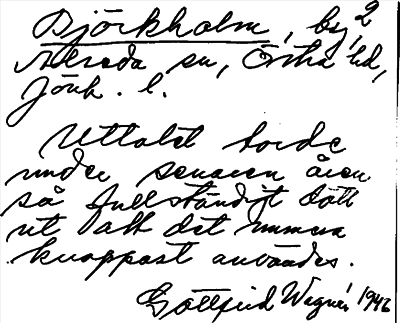 Björkholm, by, 2
Alseda sn, Östra hd,
Jönk. l.
Uttalet torde
under senare åren
så fullständigt dött
ut att det numera
knappast användes.
Gottfrid Wegner 1946